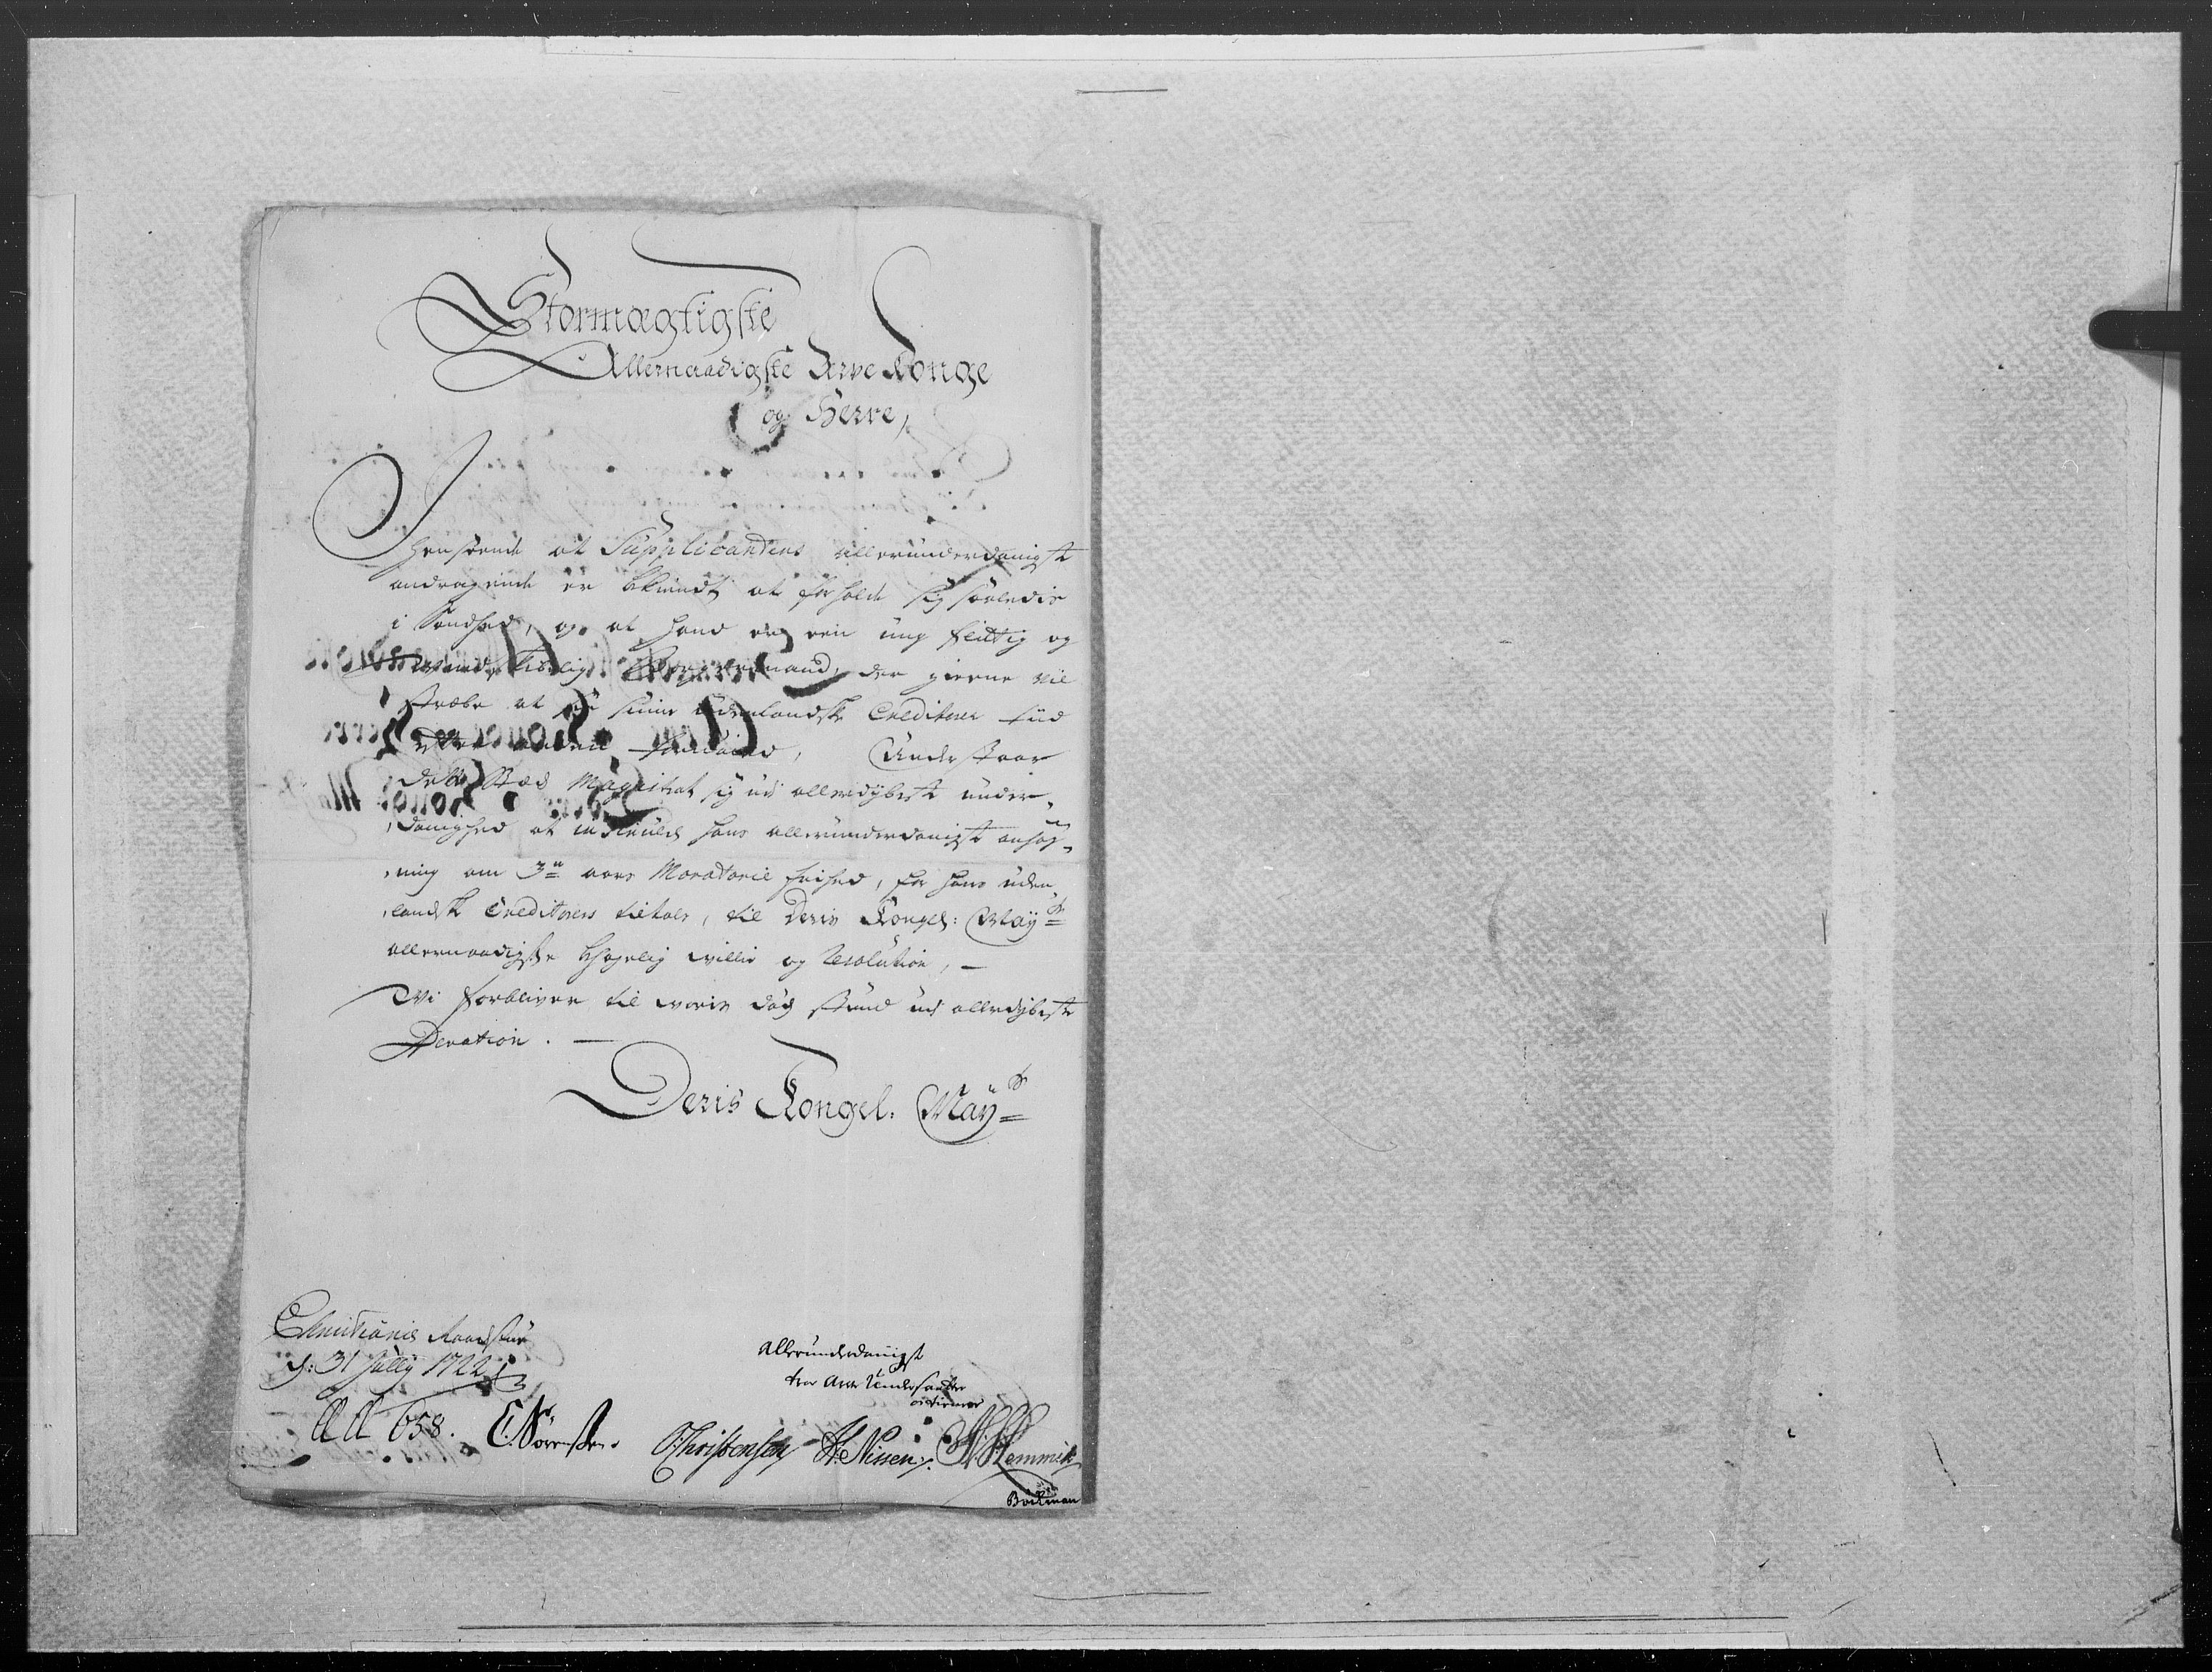 Stormægtigste
Allernaadigste Arve Konge
og Herre,
I henseende at Supplicantens allerunderdanigst
andragende er bekiendt at forholde sig saaledis
i Sandhed, og at hand er een ung flittig og
Borgermand, der gierne vil
stræbe at sine udenlandske Creditorer
Understaar
dette Stæds Magistrat sig udi allerdybeste under-
danighed at hans allerunderdanigste ansøg-
ning om 3de aars Moratorie frihed, for hans uden-
landske Creditorers tiltale, til Deris Kongel: May:ts
allernaadigste behagelig villie og Resolution, -
Wi forbliver til voris død stund udi allerdybeste
Devotion. -
Deris Kongel. May:ts
Christiania Raadstue
d: 31 July 1722
Ad 658.
Allerunderdanigst
troe Arve Undersaatter
og tienere
E. Sørensen. O: Christensen H. Nissen. N. Hemmich
Böckman